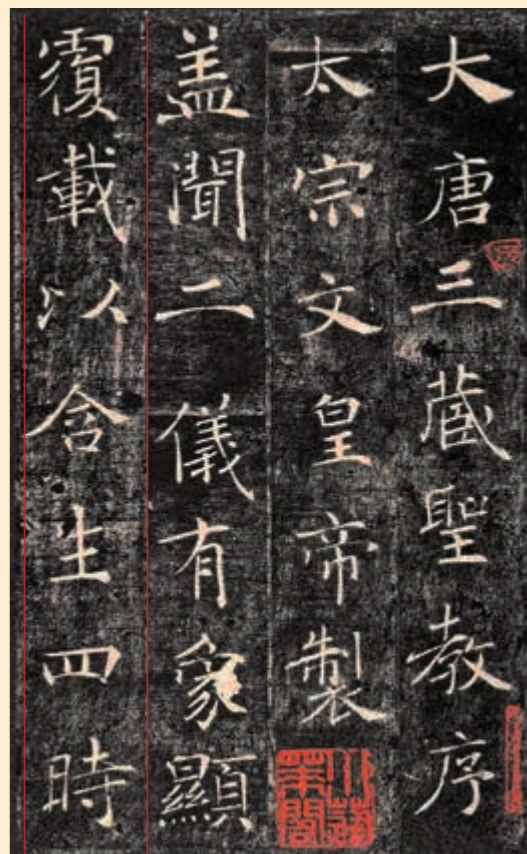 大唐三蔵聖教序
太宗文皇帝製
盖聞二儀有象顯
覆載以含生四時